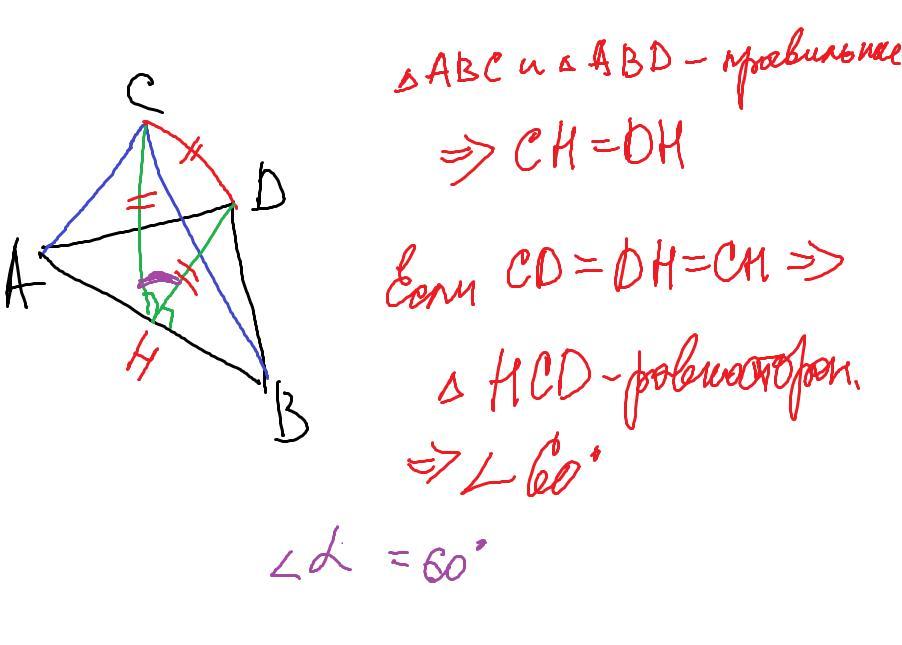 △ ABC и △ ABD - правильные
⇒ CH = DH
Если CD = DH = CH ⇒
△ HCD - равносторон.
⇒ ∠ 60°
∠α = 60°
C
D
A
H
B